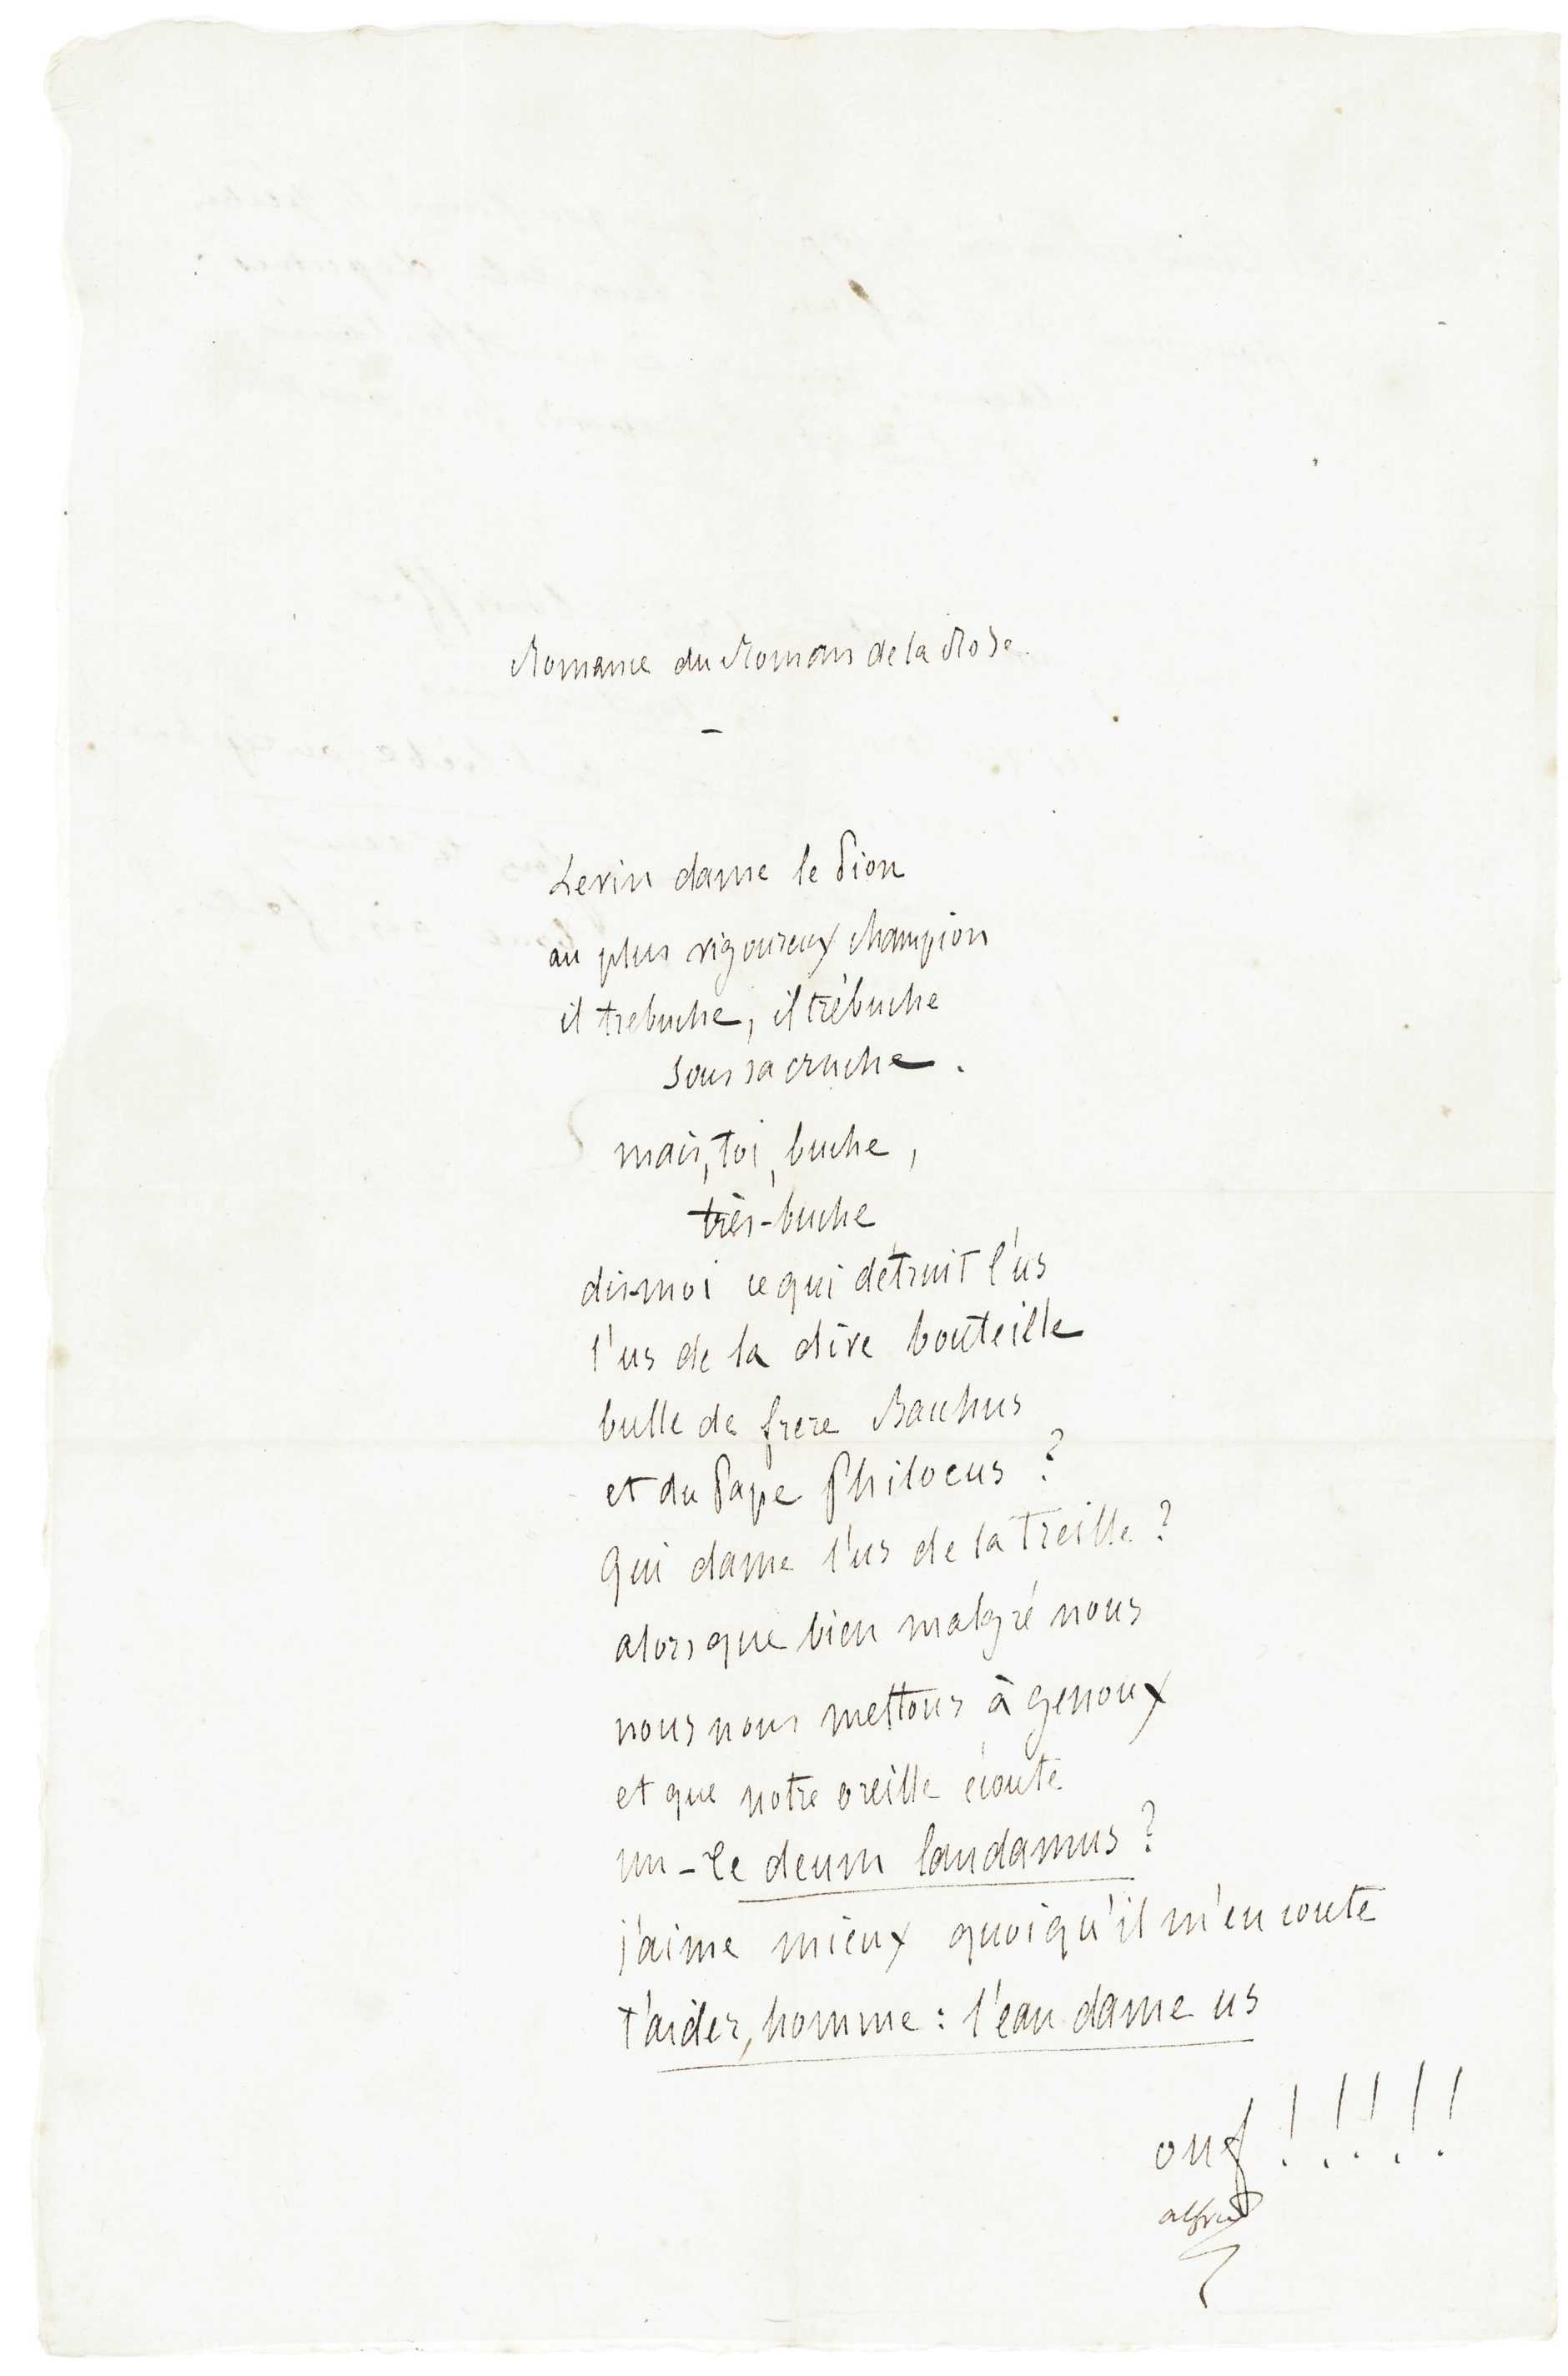 Romance du Roman de la Rose
-
Le vin dame le Pion
au plus vigoureux champion
il trebuche, il trébuche
sous sa cruche.
mais, toi, buche,
très-buche
dis-moi ce qui détruit l'us
l'us de la dive bouteille
bulle de frere Bacchus
et du Pape Philocus ?
Qui dame l'us de la Treille ?
alors que bien malgré nous
nous nous mettons à genoux
et que notre oreille écoute
un - Te deum laudamus ?
j'aime mieux quoiqu'il m'en coute
t'aider, homme : l'eau dame us
ouf !!!!!
alfred